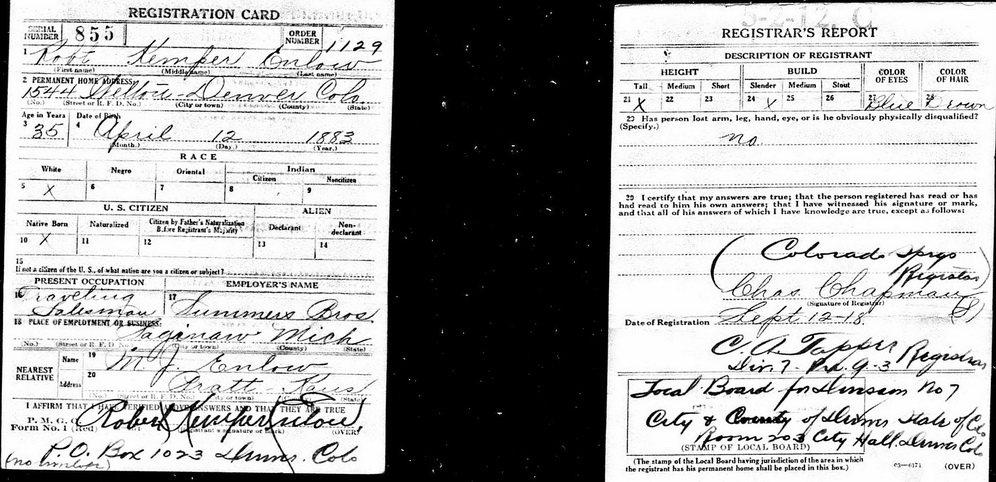 REGISTRATION CARD
SERIAL NUMBER 855 ORDER NUMBER 1129
1 Robt Kemper Enlow
(First name) (Middle name) (Last name)
2 PERMANENT HOME ADDRESS:
1544 Denver Colo
(No.) (Street or R. F. D. No.) (City or town) (County) (State)
Age in Years Date of Birth
3 35 4 April 12 1883
(Month.) (Day.) (Year.)
RACE
White Negro Oriental Indian
Citizen Noncitizen
5 X 6 7 8 9
U. S. CITIZEN ALIEN
Native Born Naturalized Citizen by Father's Naturalization Before Registrant's Majority Declarant Non-declarant
10 X 11 12 13 14
15
If not a citizen of the U. S., of what nation are you a citizen or subject?
PRESENT OCCUPATION EMPLOYER'S NAME
16 Traveling Salesman 17 Summers Bros
18 PLACE OF EMPLOYMENT OR BUSINESS:
Saginaw Mich
(No.) (Street or R. F. D. No.) (City or town) (County) (State)
NEAREST RELATIVE Name 19 M. J. Enlow
Address 20 Pratt - Kans
(No.) (Street or R. F. D. No.) (City or town) (County) (State)
I AFFIRM THAT I HAVE VERIFIED ABOVE ANSWERS AND THAT THEY ARE TRUE
P. M. G. O.
Form No. 1 (Red) Robert Kemper Enlow
(Registrant's signature or mark) (OVER)
P.O. Box 1023 Colo
5-2-12. C
REGISTRAR'S REPORT
DESCRIPTION OF REGISTRANT
HEIGHT BUILD COLOR OF EYES COLOR OF HAIR
Tall Medium Short Slender Medium Stout
21 X 22 23 24 X 25 26 27 Blue 28 Brown
29 Has person lost arm, leg, hand, eye, or is he obviously physically disqualified?
(Specify.)
no
30 I certify that my answers are true; that the person registered has read or has
had read to him his own answers; that I have witnessed his signature or mark,
and that all of his answers of which I have knowledge are true, except as follows:
Colorado Sprgs
Registrar
Chas. Chapman
(Signature of Registrar)
Date of Registration Sept 12-18
C. A. Tapper Registrar
Div. 7 - Pct. 9-3
Local Board for Division No 7
City & County of State of Co
Room 203 City Hall, Col
(STAMP OF LOCAL BOARD)
(The stamp of the Local Board having jurisdiction of the area in which
the registrant has his permanent home shall be placed in this box.)
03-6171 (OVER)